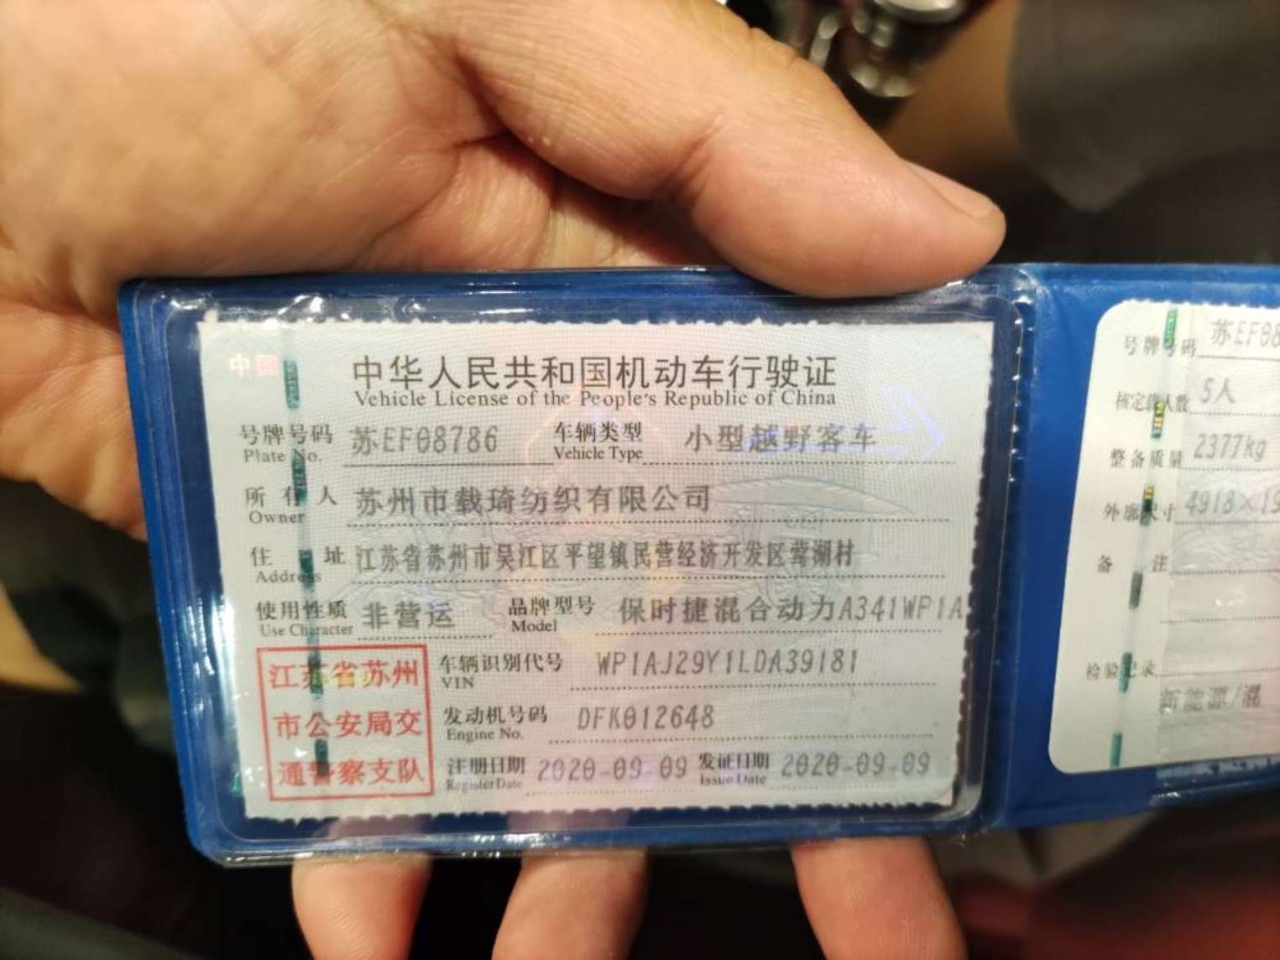 中国
中华人民共和国机动车行驶证
Vehicle License of the People's Republic of China
号牌号码 苏EF08786 车辆类型 小型越野客车
Plate No. Vehicle Type
所有人 苏州市载琦纺织有限公司
Owner
住址 江苏省苏州市吴江区平望镇民营经济开发区莺湖村
Address
使用性质 非营运 品牌型号 保时捷混合动力A341WP1A
Use Character Model
江苏省苏州
市公安局交
通警察支队
车辆识别代号 WP1AJ29Y1LDA39181
VIN
发动机号码 DFK012648
Engine No.
注册日期 2020-09-09 发证日期 2020-09-09
Register Date Issue Date
号牌号码 苏EF08
核定载人数 5人
整备质量 2377kg
外廓尺寸 4918×19
备注
检验记录
新能源/混